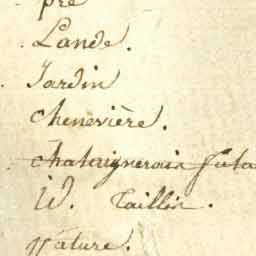 pré
Lande.
Jardin
chenevière.
chataignerais futa
id. Taillis.
Pature.